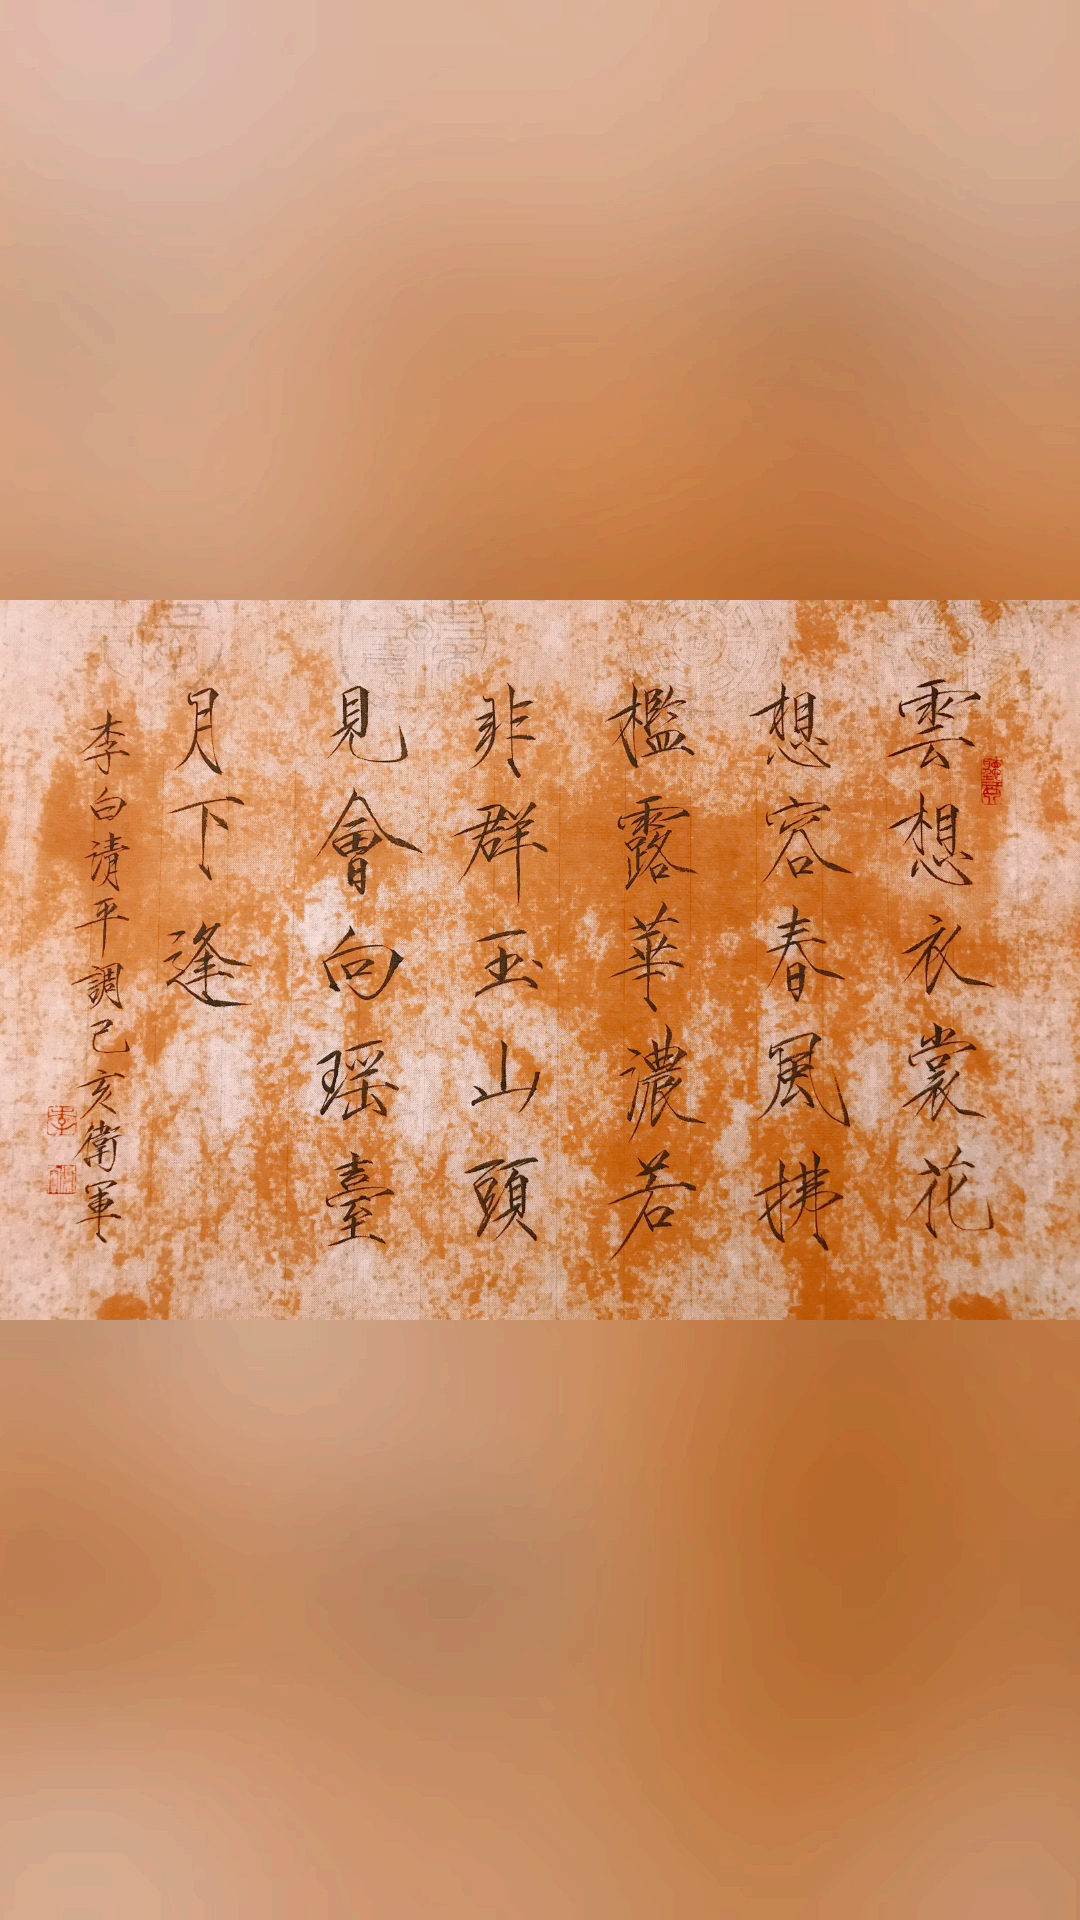 雲想衣裳花
想容春風拂
檻露華濃若
非群玉山頭
見會向瑶臺
月下逢
李白清平調己亥衛軍